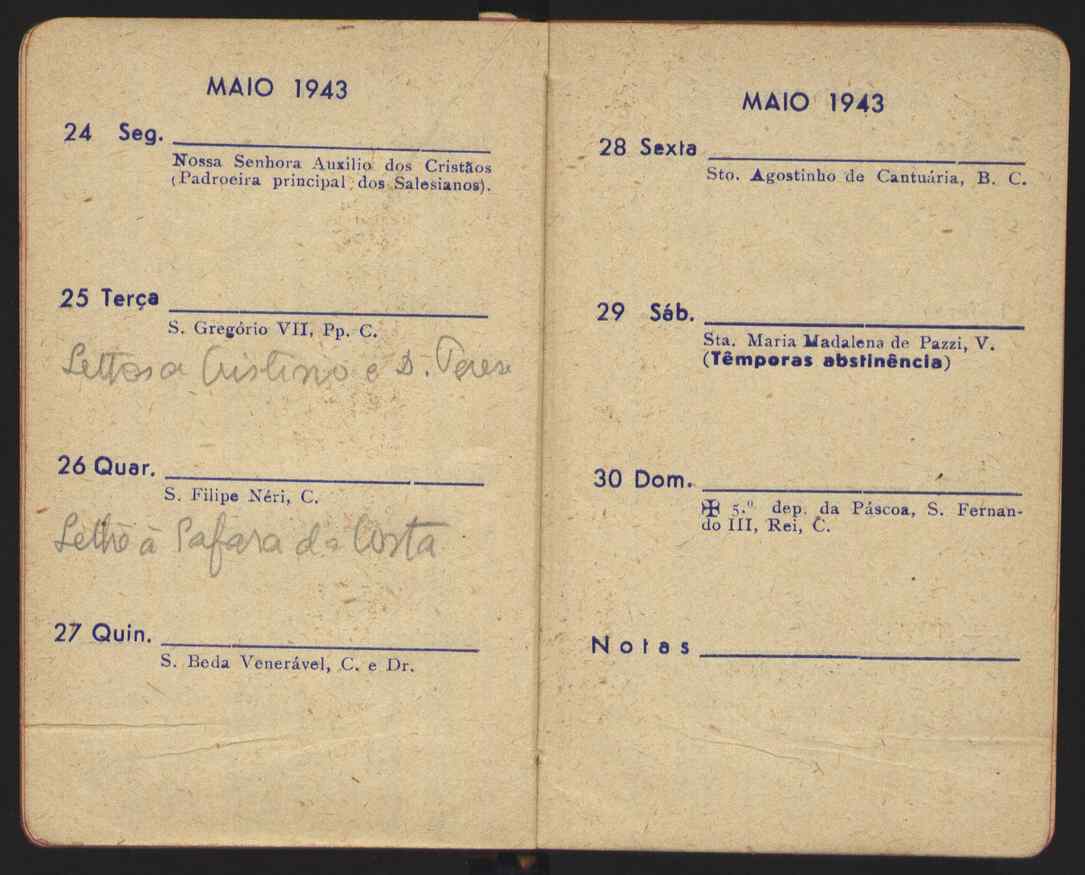 MAIO 1943
24 Seg.
Nossa Senhora Auxilio dos Cristãos
(Padroeira principal dos Salesianos).
25 Terça
S. Gregório VII, Pp. C.
a Cristino e D.
26 Quar.
S. Filipe Néri, C.
à da Costa
27 Quin.
S. Beda Venerável, C. e Dr.
MAIO 1943
28 Sexta
Sto. Agostinho de Cantuária, B. C.
29 Sáb.
Sta. Maria Madalena de Pazzi, V.
(Têmporas abstinência)
30 Dom.
✠ 5.º dep. da Páscoa, S. Fernan-
do III, Rei, C.
Notas